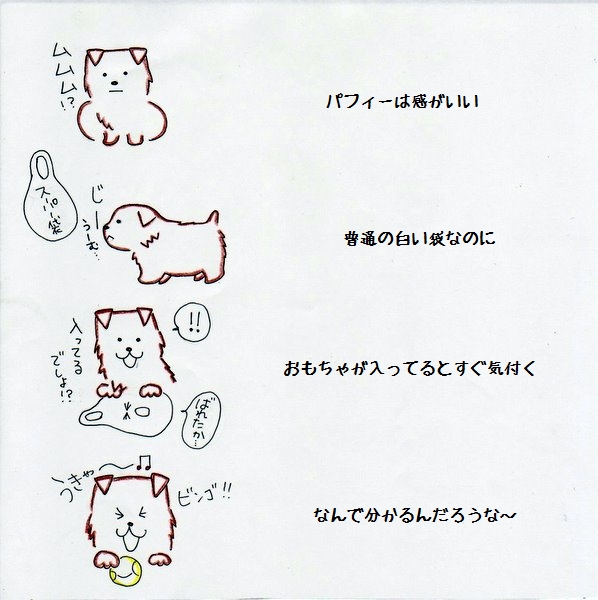 ムムム!?
パフィーは感がいい
スーパー袋
じーー
うーむ…
普通の白い袋なのに
!!
入ってる
でしょ!?
ばれたか…
おもちゃが入ってるとすぐ気付く
うきゃ〜♫
ビンゴ!!
なんで分かるんだろうな〜